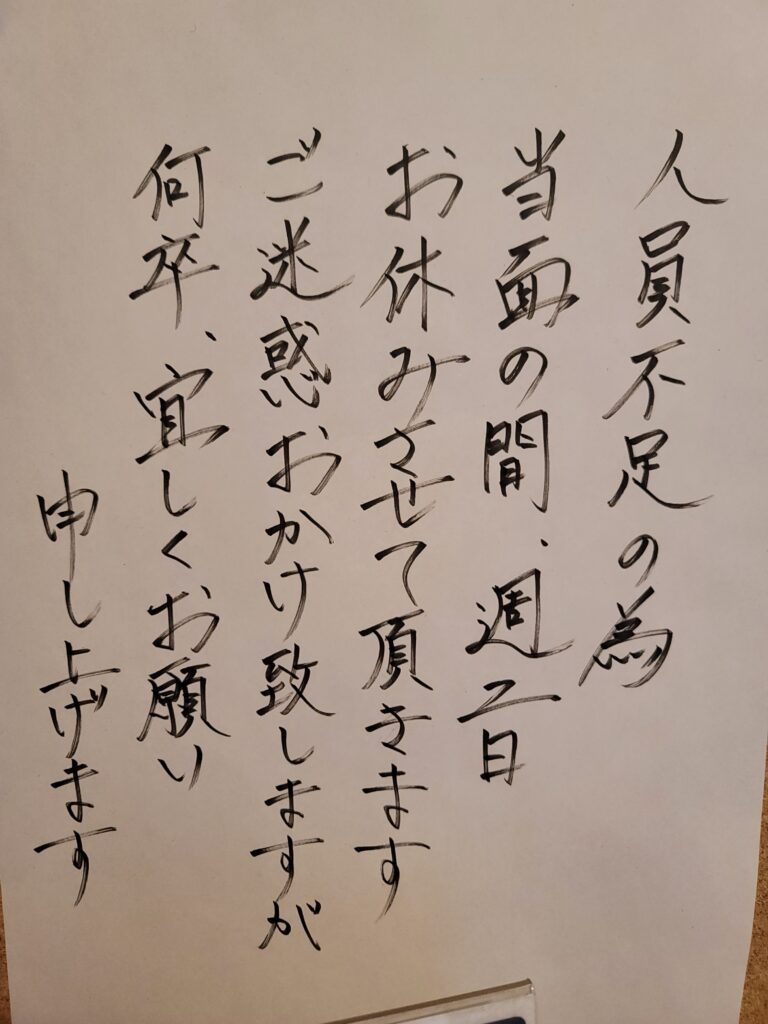 人員不足の為
当面の間、週二日
お休みさせて頂きます
ご迷惑おかけ致しますが
何卒、宜しくお願い
申し上げます